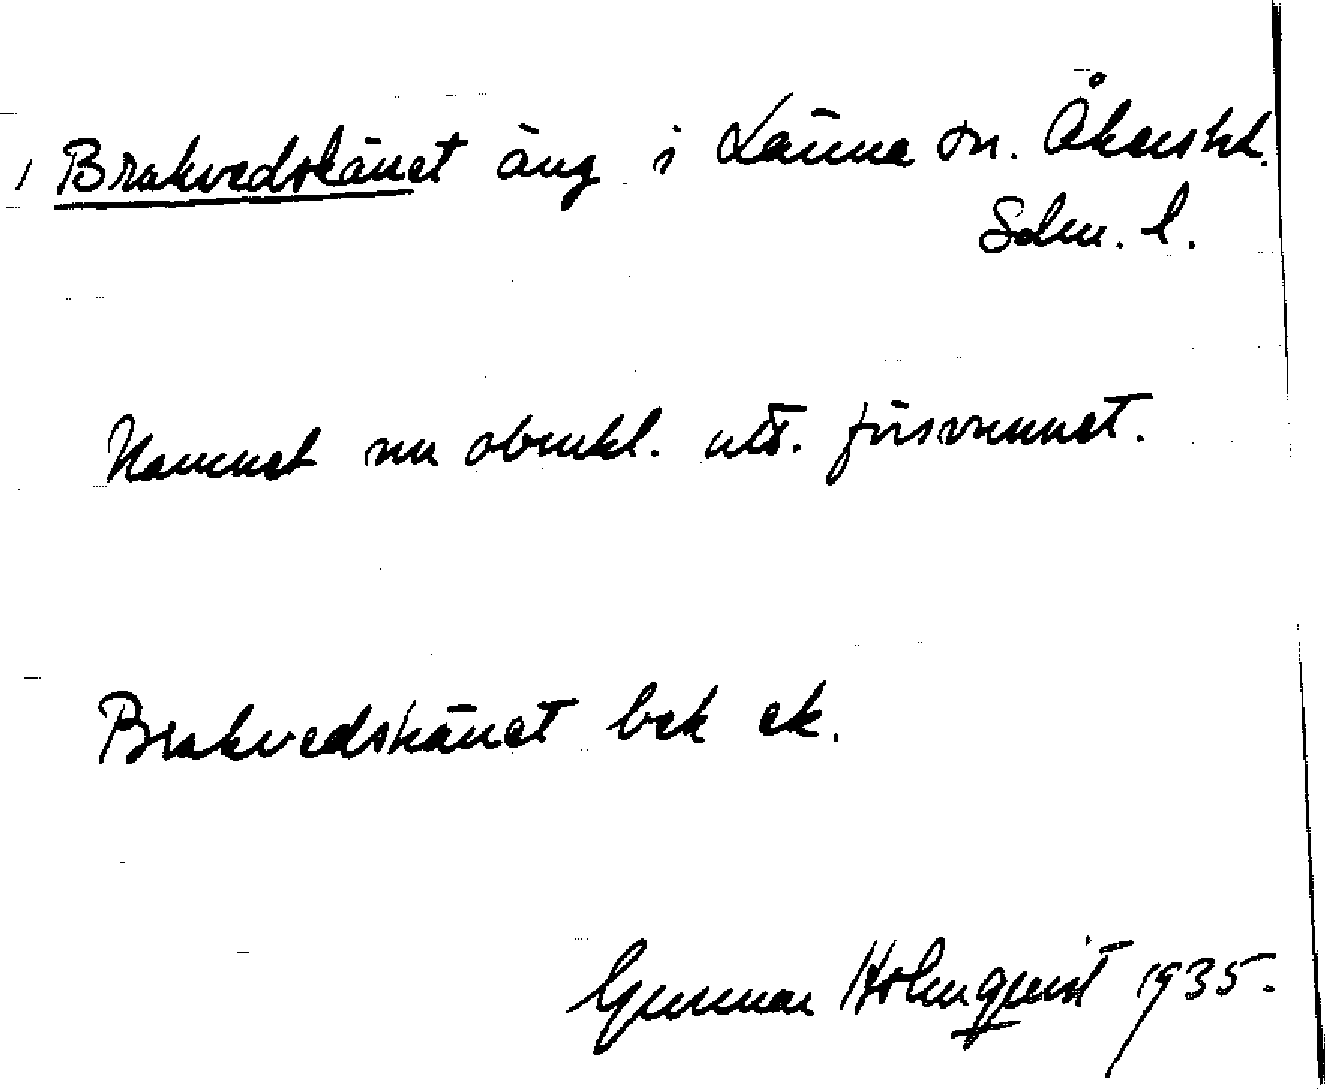 Brakvedskänet äng i Länna sn. Åkers hd.
Sdm. l.
Namnet nu obrukl. utt. försvunnet.
Brakvedskänet bck ek.
Gunnar Holmqvist 1935.